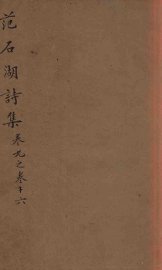 范石湖詩集卷九之卷十六